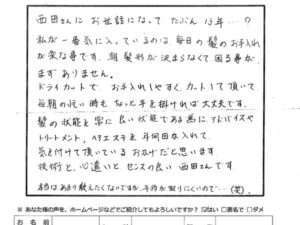 西田さんに お世話になって たぶん 13年…?
私が一番気に入っているのは 毎日の 髪のお手入れ
が楽な事です。朝 髪形が 決まらなくて 困る事が
まず ありません。
ドライカットで お手入れしやすく カットして頂いて
毎朝の忙しい時も ちょっと手を掛ければ大丈夫です。
髪の状態を 常に良い状態である為に アドバイスや
トリートメント、ヘナエステを 年何回か入れて
気を付けて頂いている おかげだと思います
技術と、心遣いと センスの良い 西田さんです
本当はあまり教えたくないのですが、予約が取りにくいので…(笑)
※ あなた様の声を、ホームページなどでご紹介してもよろしいですか? ☑はい □匿名で □ダメ
お 名 前